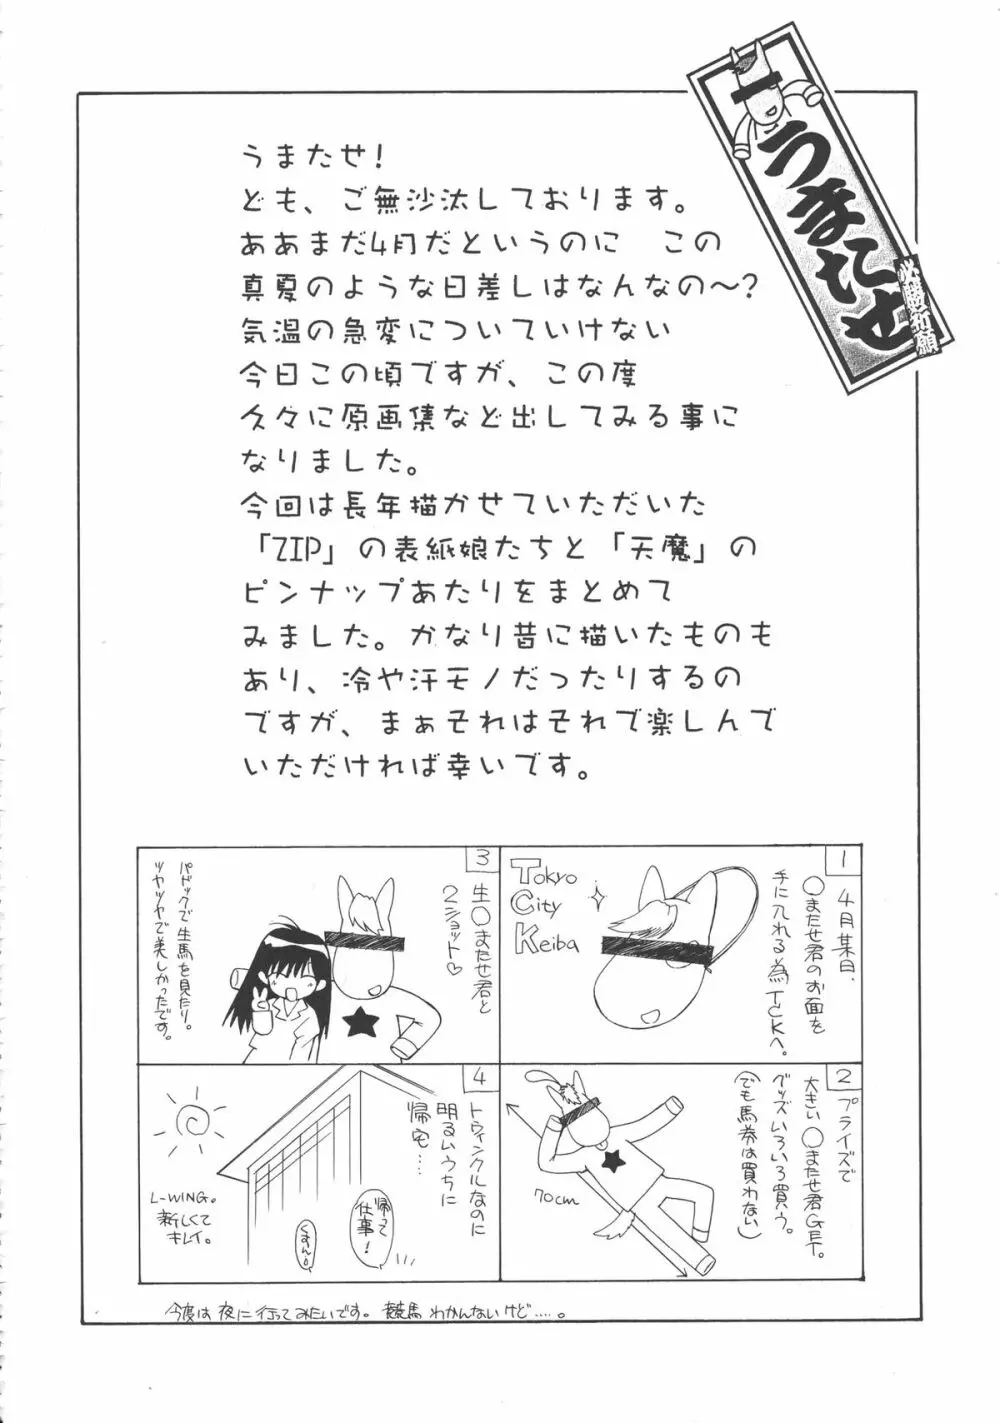 うまたせ
必勝祈願
うまたせ!
ども、ご無沙汰しております。
ああまだ4月だというのに　この
真夏のような日差しはなんなの〜?
気温の急変についていけない
今日この頃ですが、この度
久々に原画集など出してみる事に
なりました。
今回は長年描かせていただいた
「ZIP」の表紙娘たちと「天魔」の
ピンナップあたりをまとめて
みました。かなり昔に描いたものも
あり、冷や汗モノだったりするの
ですが、まぁそれはそれで楽しんで
いただければ幸いです。
1
4月某日、
〇またせ君のお面を
手に入れる為TCKへ。
Tokyo
City
Keiba
2
プライズで
大きい〇またせ君GET。
グッズいろいろ買う。
(でも馬券は買わない)
70cm
3
生〇またせ君と
2ショット♡
パドックで生馬を見たり。
ツヤツヤで美しかったです。
4
トゥインクルなのに
明るいうちに
帰宅……
帰って
仕事!
L-WING。
新しくて
キレイ。
今度は夜に行ってみたいです。競馬わかんないけど……。